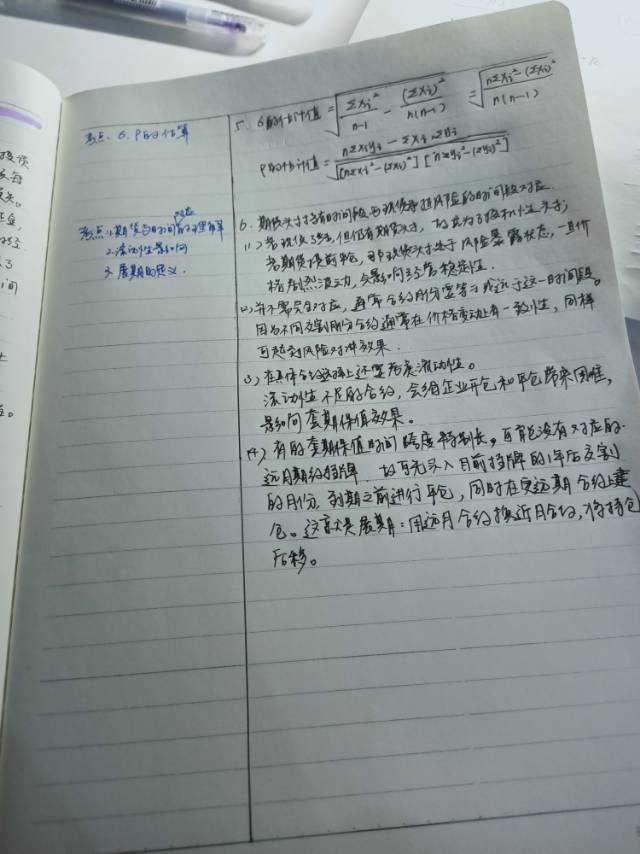 考点: 6. P的计算
5. 6的估计值 = √(Σxᵢ²/(n-1) - (Σxᵢ)²/(n(n-1))) = √((nΣxᵢ² - (Σxᵢ)²)/(n(n-1)))
P的估计值 = (nΣxᵢyᵢ - Σxᵢ·Σyᵢ)/√([nΣxᵢ² - (Σxᵢ)²][nΣyᵢ² - (Σyᵢ)²])
对应
考点: 1.期货与时间的理解
2. 流动性影响
3. 展期的定义.
6. 期货头寸持有时间段与现货承担风险的时间段对应.
(1) 若现货了结, 但仍有期货头寸, 故成为了投机性头寸;
若期货提前平仓, 那现货头寸处于风险暴露状态, 一旦价
格剧烈波动, 会影响经营稳定性.
(2) 并不需完全对应, 通常合约月份要等于或远于这一时间段。
因为不同交割月份合约通常在价格变动上有一致性, 同样
可起到风险对冲效果.
(3) 在具体合约选择上还要考虑流动性。
流动性不足的合约, 会给企业开仓和平仓带来困难,
影响套期保值效果。
(4) 有的套期保值时间跨度特别长, 可能没有对应的
远月期约挂牌. 故可先买入目前挂牌的1年后交割
的月份. 到期之前进行平仓, 同时在更远期合约上建
仓。这就是展期: 用远月合约换近月合约, 将持仓
后移。